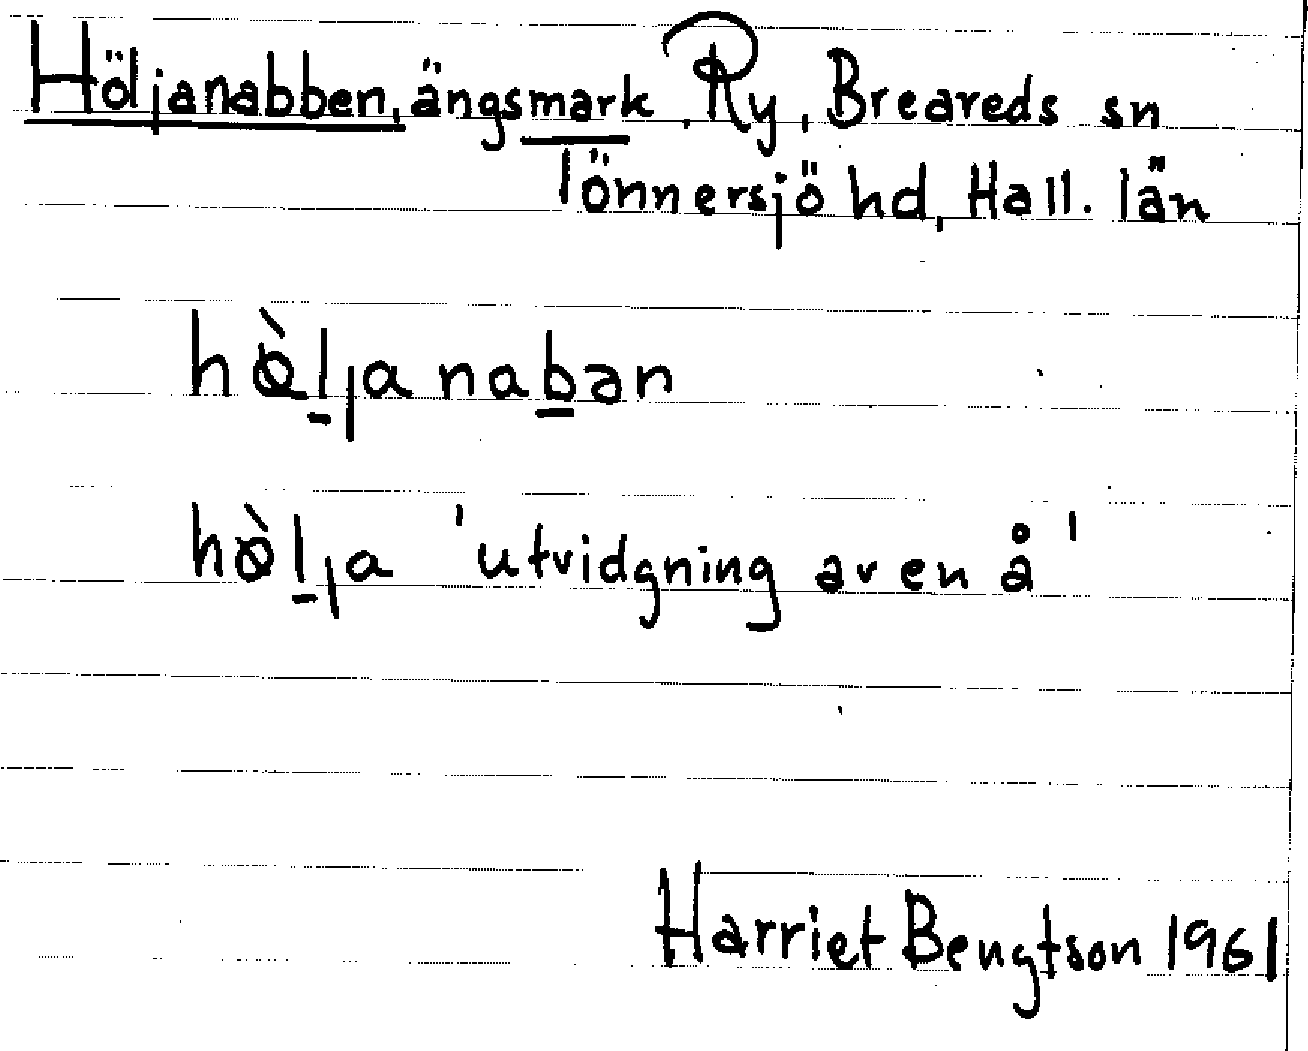 Höljanabben, ängsmark, Ry, Breareds sn
Tönnersjö hd, Hall. län
hø̀l̠janab̠ən
hø̀l̠ja 'utvidgning av en å'
Harriet Bengtson 1961